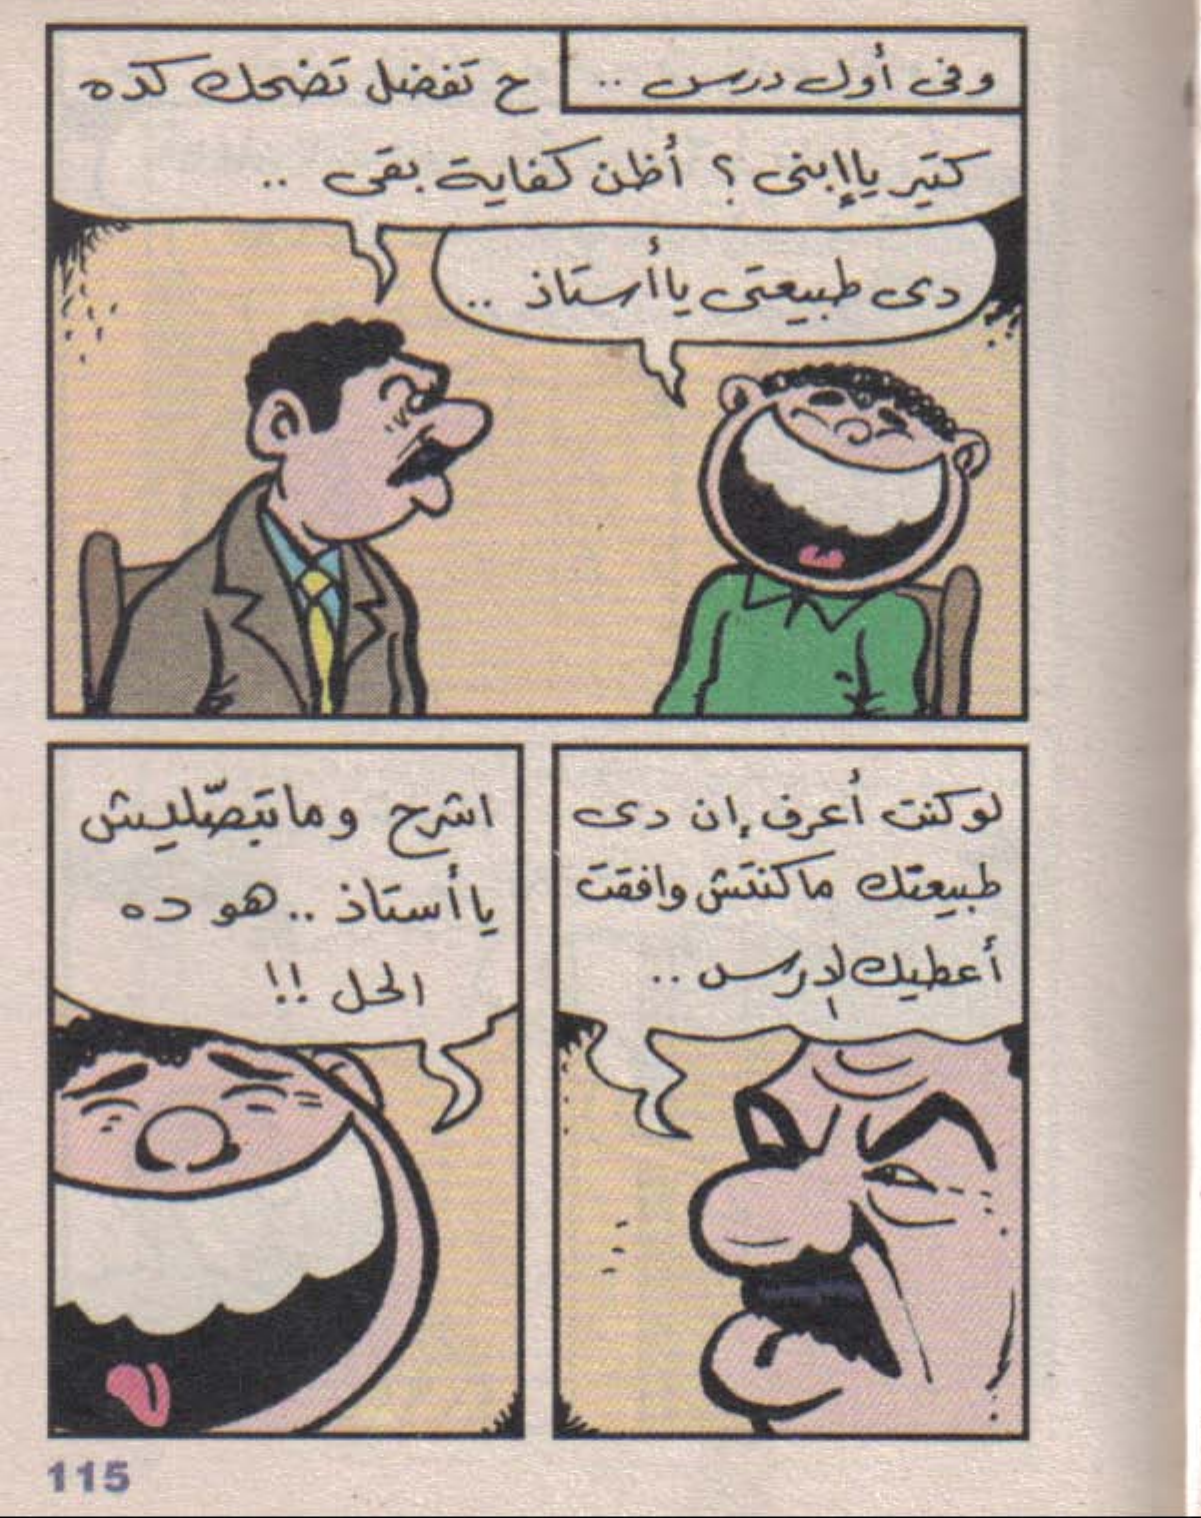 وفى أول درس ..
ح تفضل تضحك كده
كتير ياإبنى ؟ أظن كفاية بقى ..
دى طبيعتى ياأستاذ ..
لو كنت أعرف إن دى
طبيعتك ماكنتش وافقت
أعطيك لدرس ..
اشرح وماتبصّليش
ياأستاذ .. هو ده
الحل !!
115